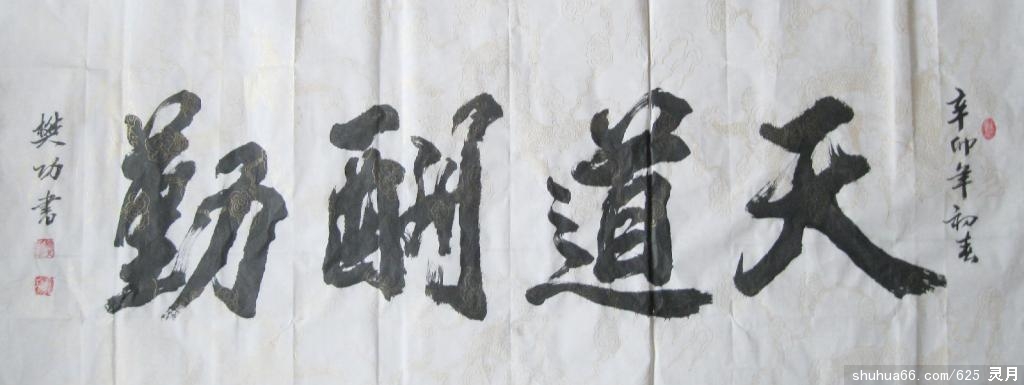 辛卯年初春
天道酬勤
樊功书
shuhua66.com/625 灵月